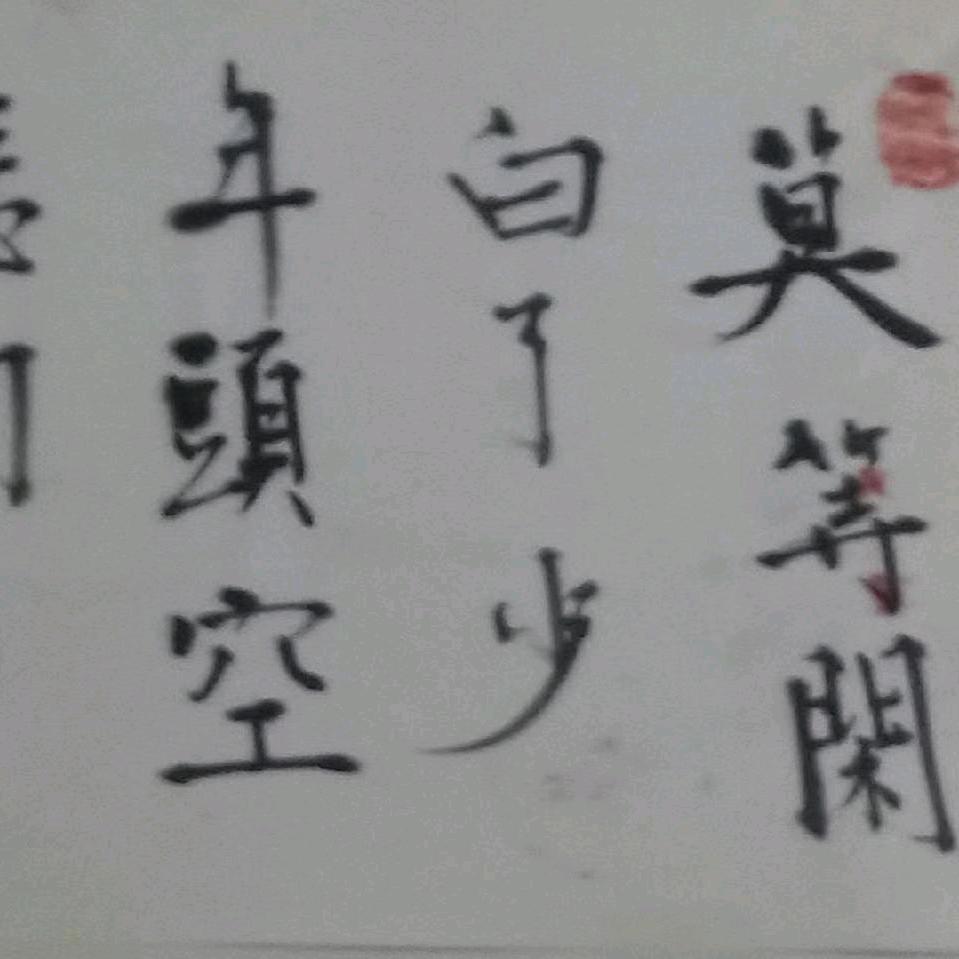 莫等閑
白了少
年頭空